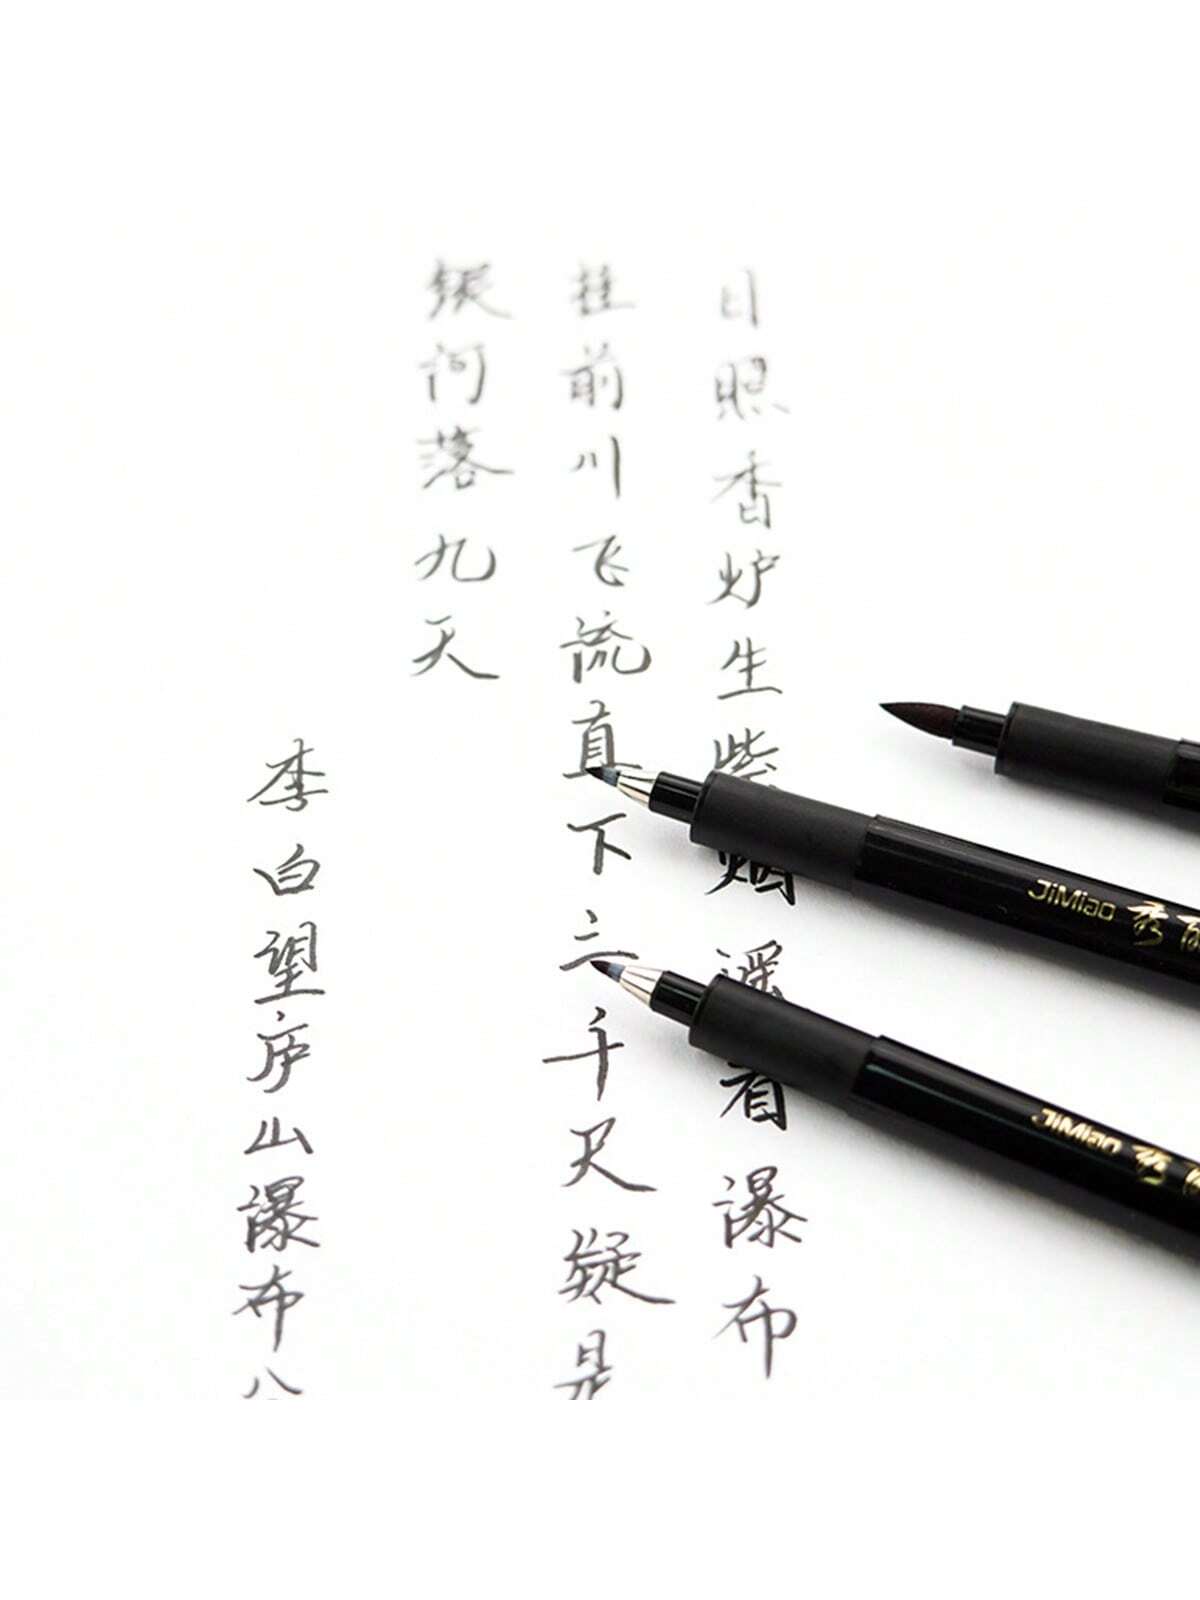 日照香炉生紫烟遥看瀑布
挂前川飞流直下三千尺疑是
银河落九天
李白望庐山瀑布
JiMiao 秀
JiMiao 秀